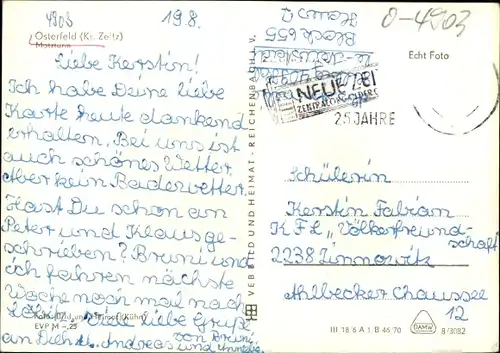 4903
19.8.
Osterfeld (Kr. Zeitz)
Motzturm
Liebe Kerstin!
Ich habe Deine liebe
Karte heute dankend
erhalten. Bei uns ist
auch schönes Wetter,
Aber kein Badewetter.
Hast Du schon an
Peter und Klaus ge-
schrieben? Bruni und
ich fahren nächste
Woche noch mal nach
Viele liebe Grüße
EVP M -,25
an Dich Andreas und
von Bruni
VEB BILD UND HEIMAT · REICHENBACH i. V.
0-4903
Block 655
Haus
NEUE ZEIT
ZENTRALORGAN DER CDU
25 JAHRE
Echt Foto
Schülerin
Kerstin Fabian
KFL „Völkerfreund-
schaft
2238 Zinnowitz
Ahlbecker Chaussee
12
III 18 6 A 1 B 46 70
DAMW
8/3082